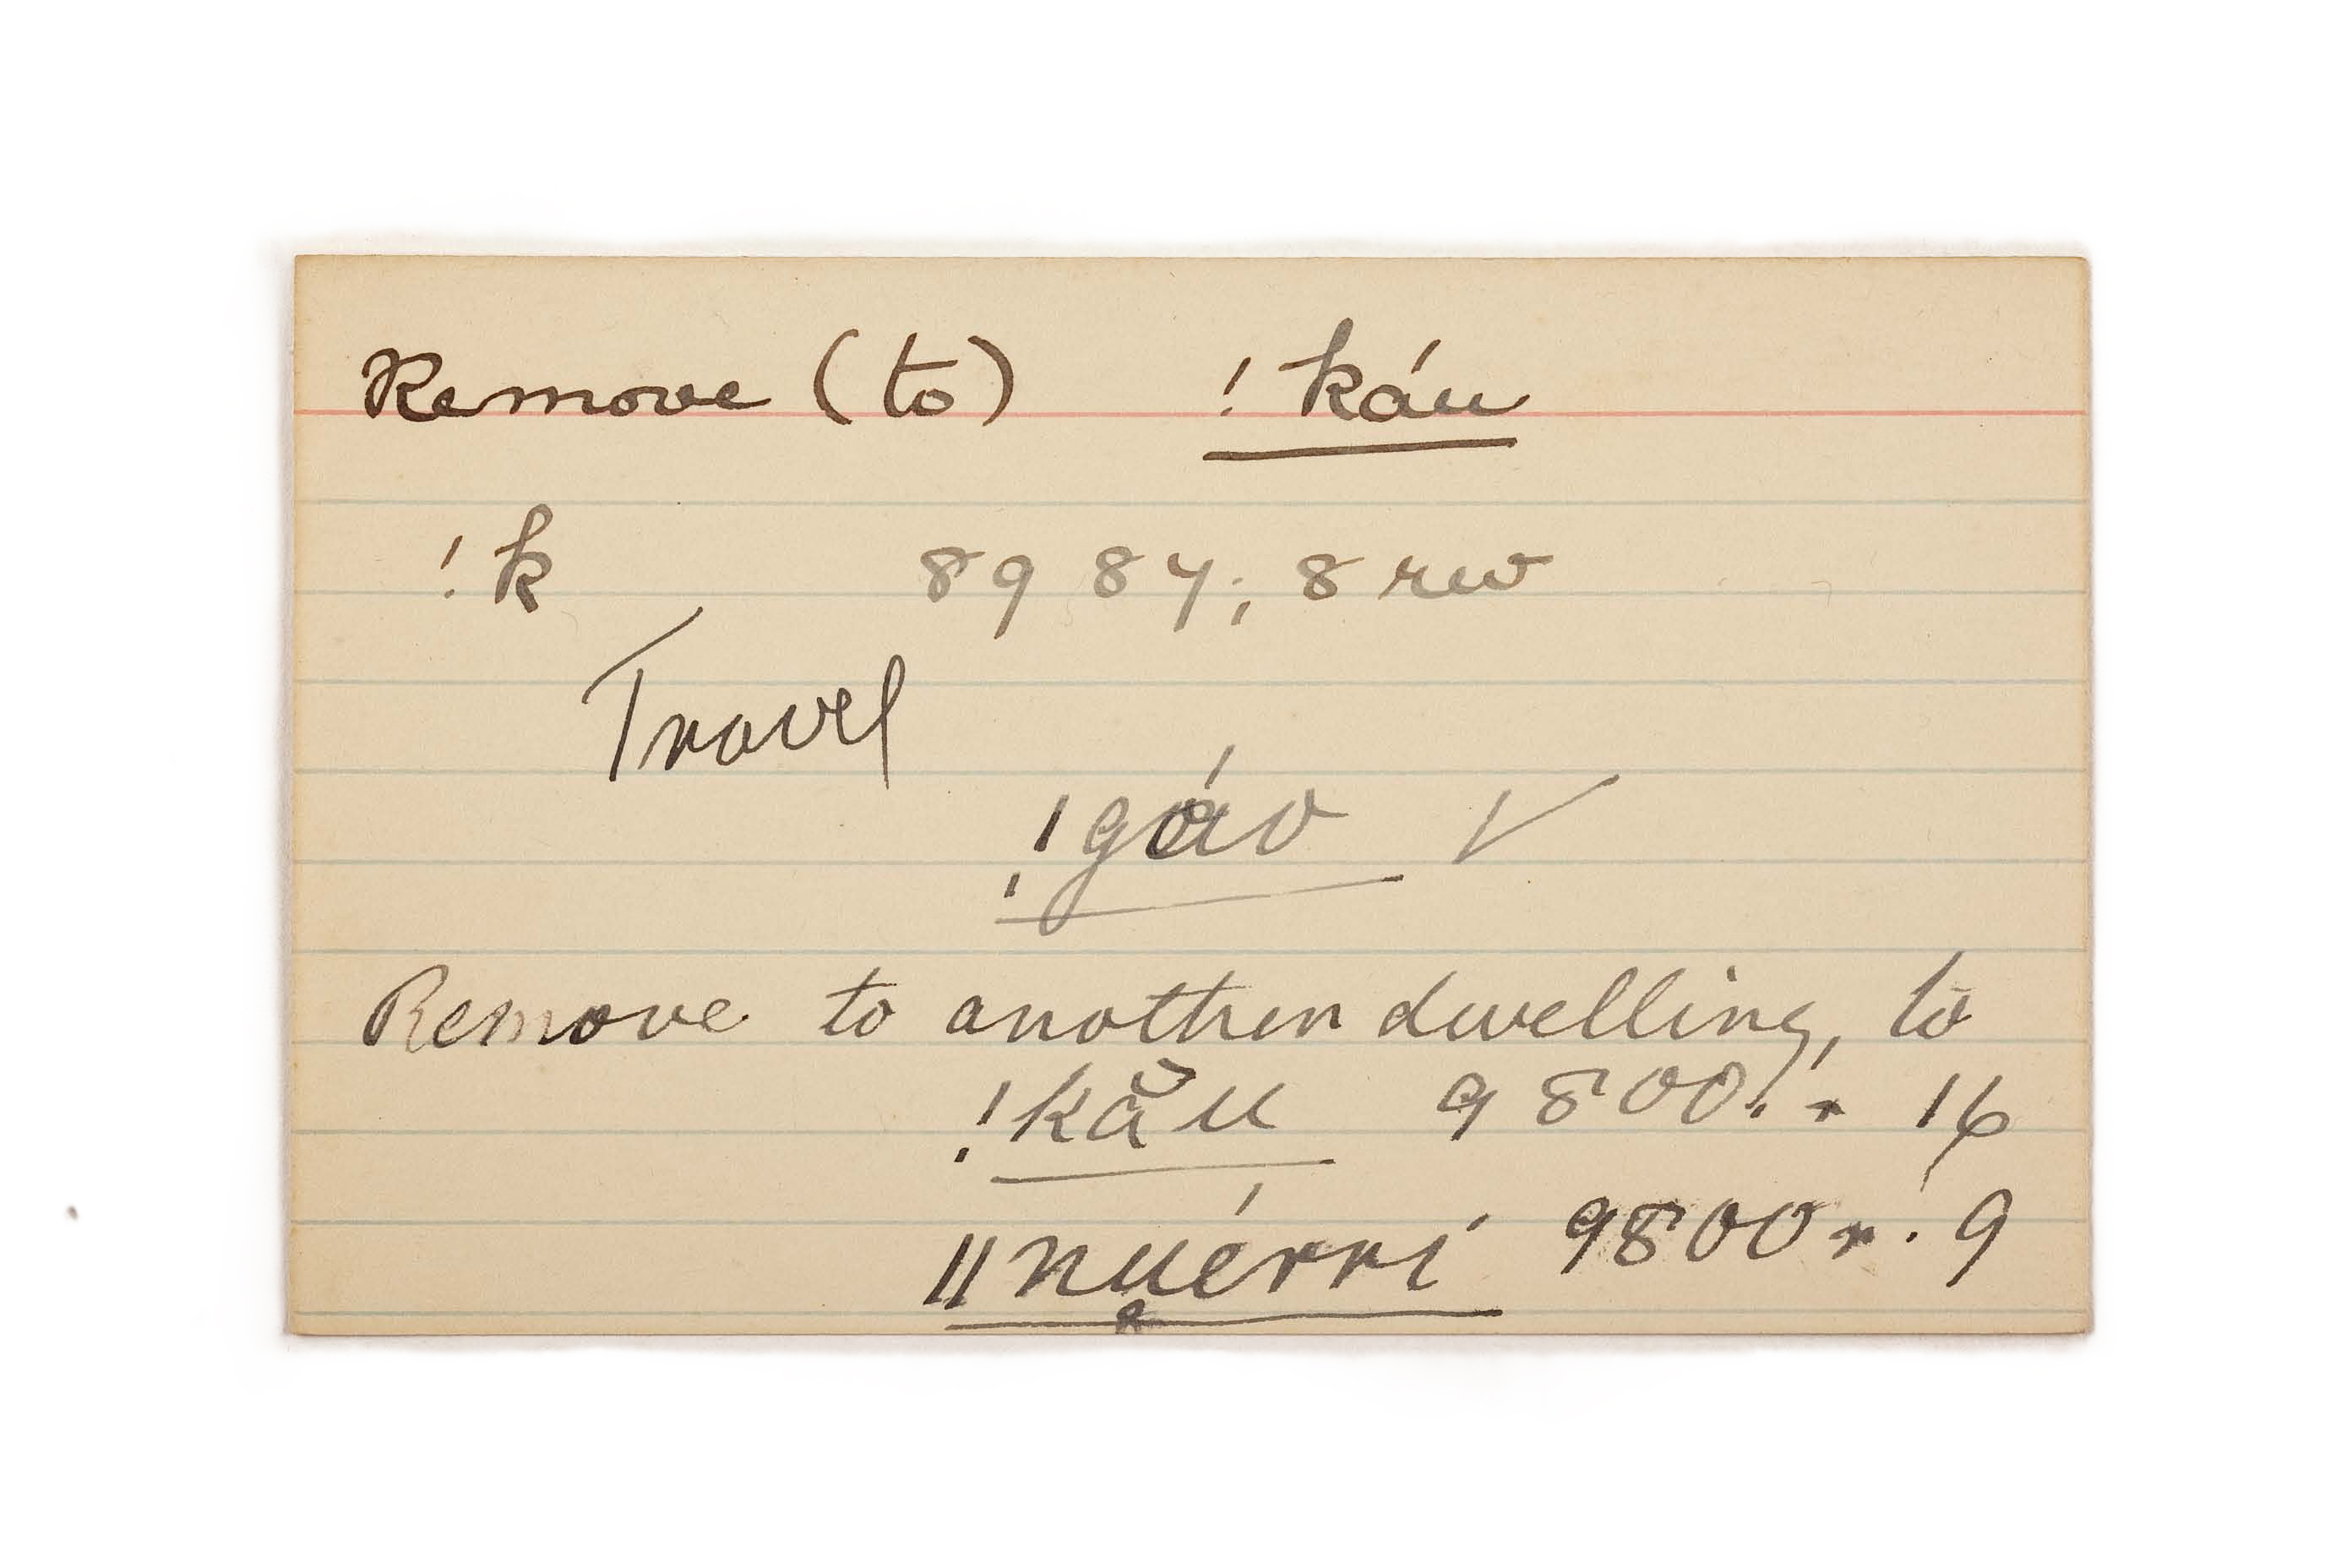 Remove (to) !káu
!k 8984; 8 rev
Travel
!gáo ✓
Remove to another dwelling, to
!kå̆u 9800. r 16
ǁnu̥érrí 9800 r. 9